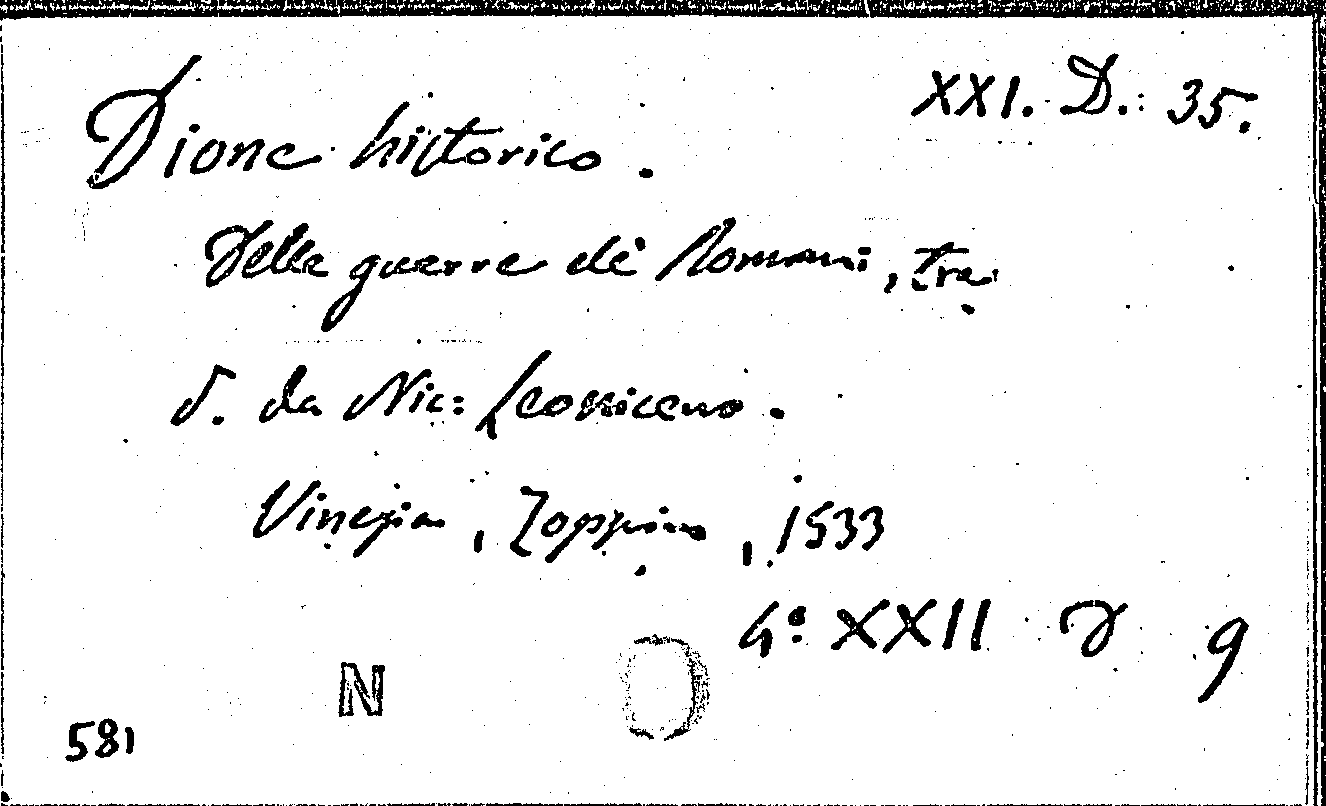 XXI. D. 35.
Dione historico.
Delle guerre de' Romani, tra
d. da Nic: Leoniceno.
Vinegia, Zoppino, 1533
4° XXII D 9
N O
581